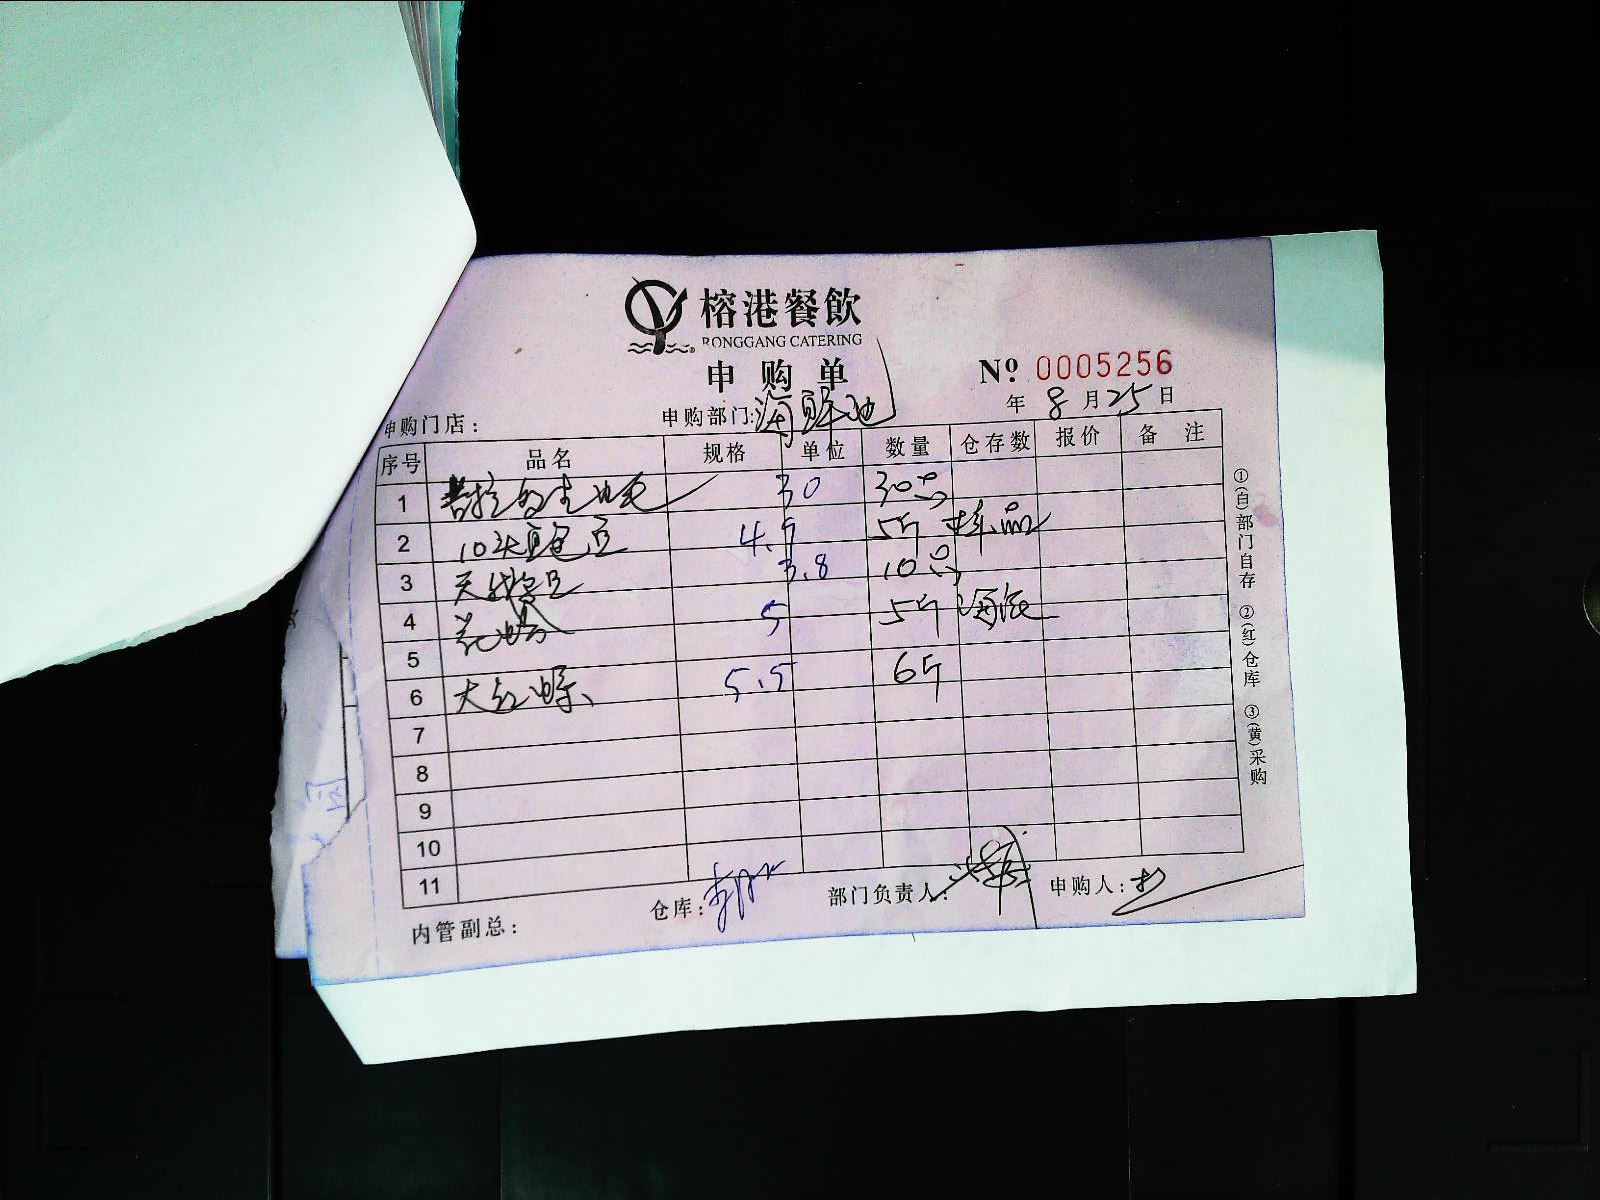 榕港餐飲
RONGGANG CATERING
申购单
№ 0005256
年 8 月 25 日
申购门店：
申购部门: 海鲜池
序号 品名 规格 单位 数量 仓存数 报价 备注
1 生蚝 30 30只
2 10头鲍 4.5 5斤 样品
3 3.8 10只
4 花蛤 5 5斤
5
6 大红 5.5 6斤
7
8
9
10
11
内管副总：
仓库：
部门负责人：
申购人：
①(白)部门自存 ②(红)仓库 ③(黄)采购